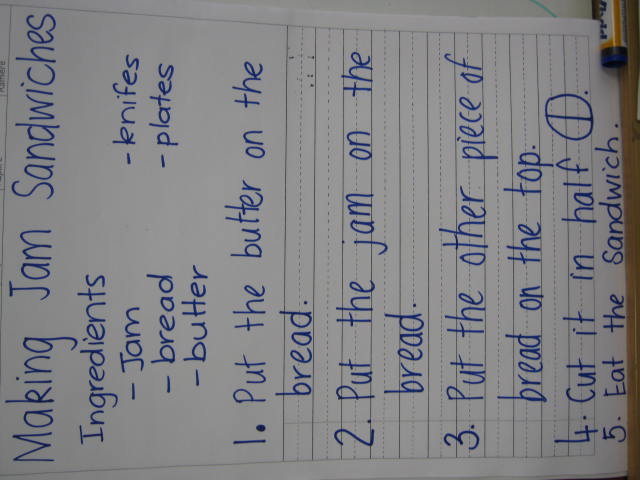 Making Jam Sandwiches
Ingredients
- Jam - knifes
- bread - plates
- butter
1. Put the butter on the
bread.
2. Put the jam on the
bread.
3. Put the other piece of
bread on the top.
4. Cut it in half.
5. Eat the Sandwich.